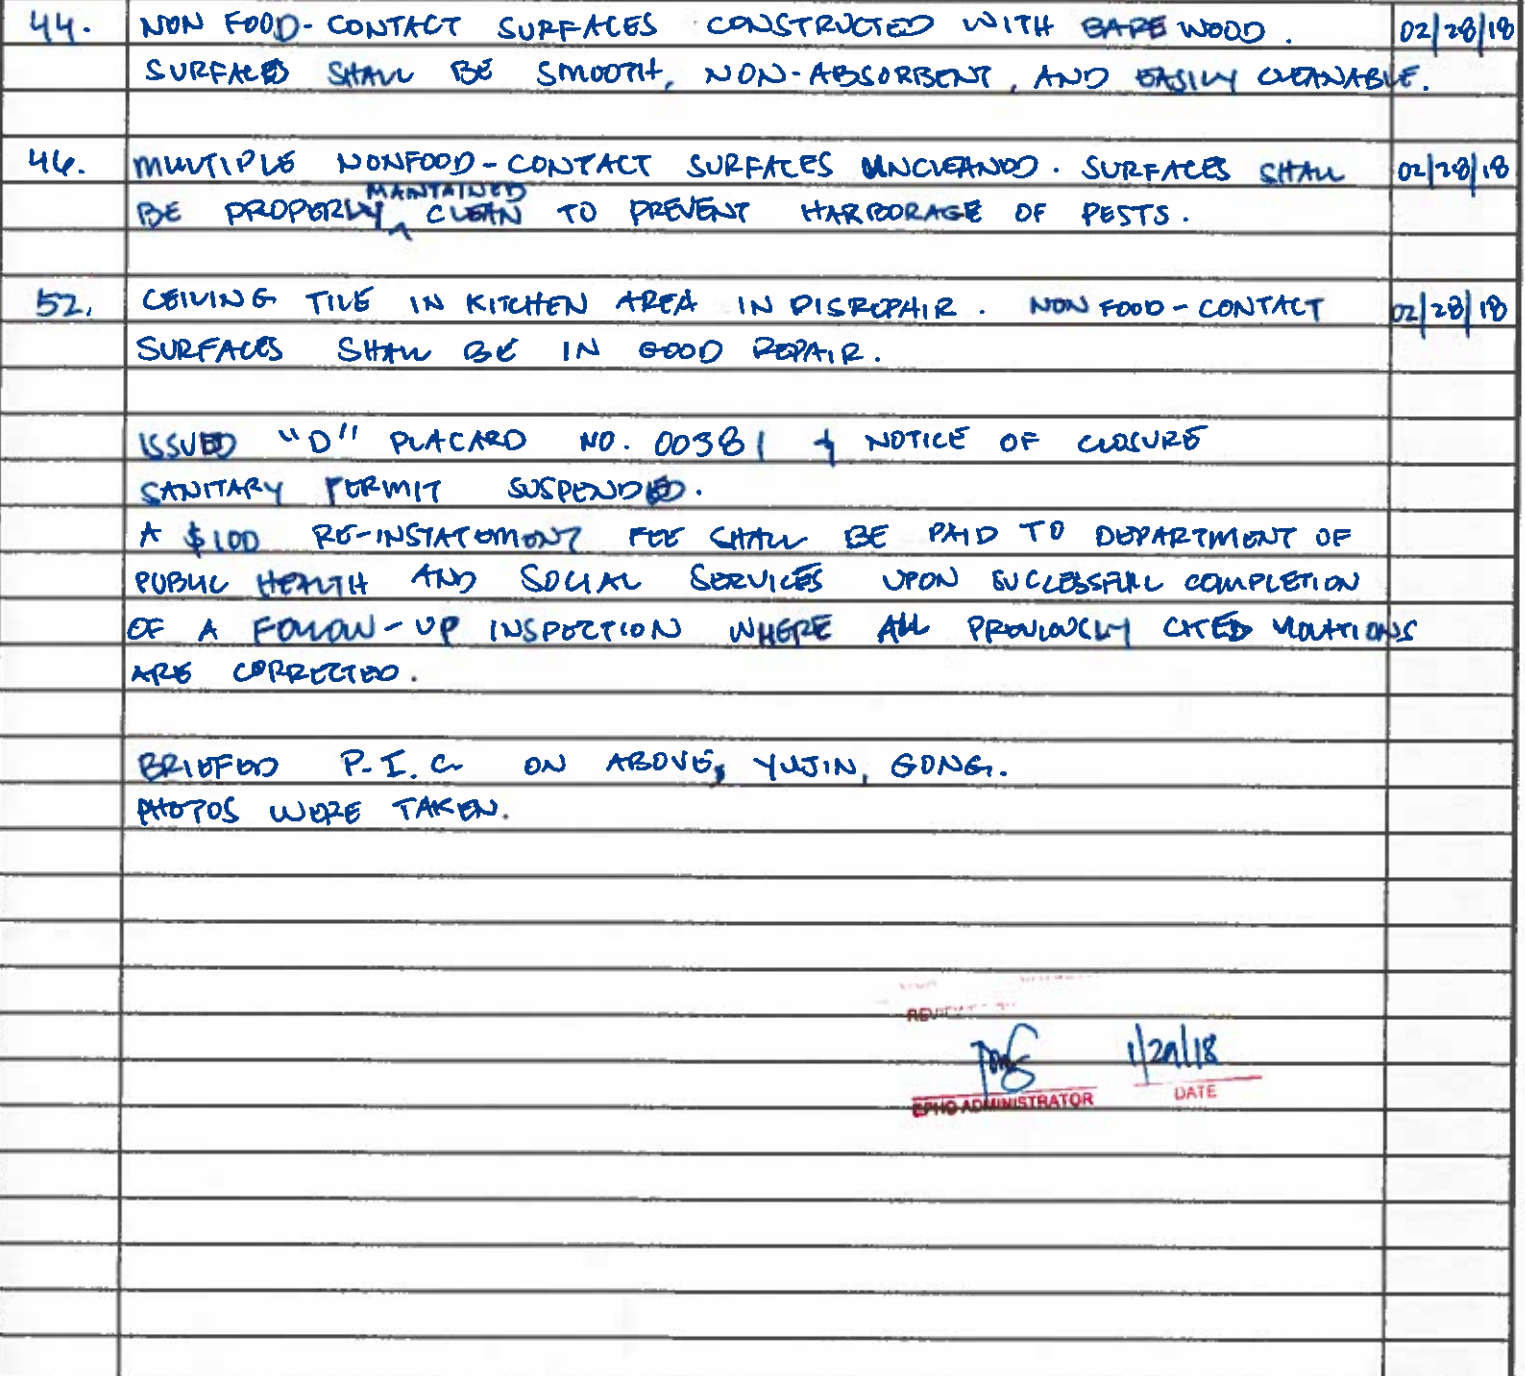 44. NON FOOD-CONTACT SURFACES CONSTRUCTED WITH BARE WOOD. 02/28/18
SURFACES SHALL BE SMOOTH, NON-ABSORBENT, AND EASILY CLEANABLE.
46. MULTIPLE NONFOOD-CONTACT SURFACES UNCLEANED. SURFACES SHALL 02/28/18
BE PROPERLY MAINTAINED CLEAN TO PREVENT HARBORAGE OF PESTS.
52. CEILING TILE IN KITCHEN AREA IN DISREPAIR. NON FOOD-CONTACT 02/28/18
SURFACES SHALL BE IN GOOD REPAIR.
ISSUED "D" PLACARD NO. 00381 & NOTICE OF CLOSURE
SANITARY PERMIT SUSPENDED.
A $100 RE-INSTATEMENT FEE SHALL BE PAID TO DEPARTMENT OF
PUBLIC HEALTH AND SOCIAL SERVICES UPON SUCCESSFUL COMPLETION
OF A FOLLOW-UP INSPECTION WHERE ALL PREVIOUSLY CITED VIOLATIONS
ARE CORRECTED.
BRIEFED P.I.C. ON ABOVE, YUJIN, GONG.
PHOTOS WERE TAKEN.
1/29/18
EPHO ADMINISTRATOR DATE